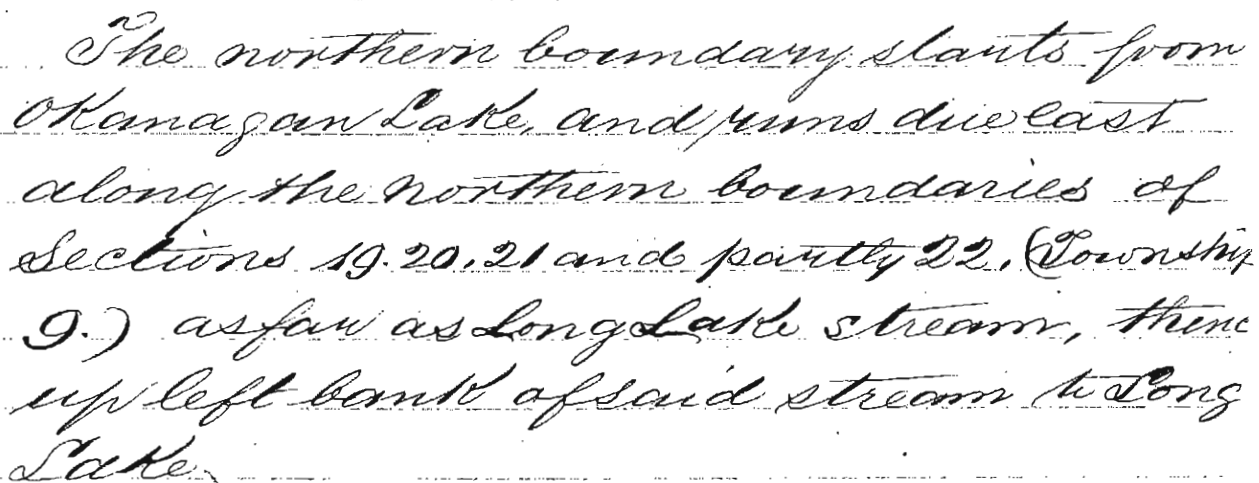 The northern boundary starts from
Okanagan Lake, and runs due east
along the northern boundaries of
Sections 19.20.21 and partly 22. (Township
9.) as far as Long Lake stream, thenc
up left bank of said stream to Long
Lake.